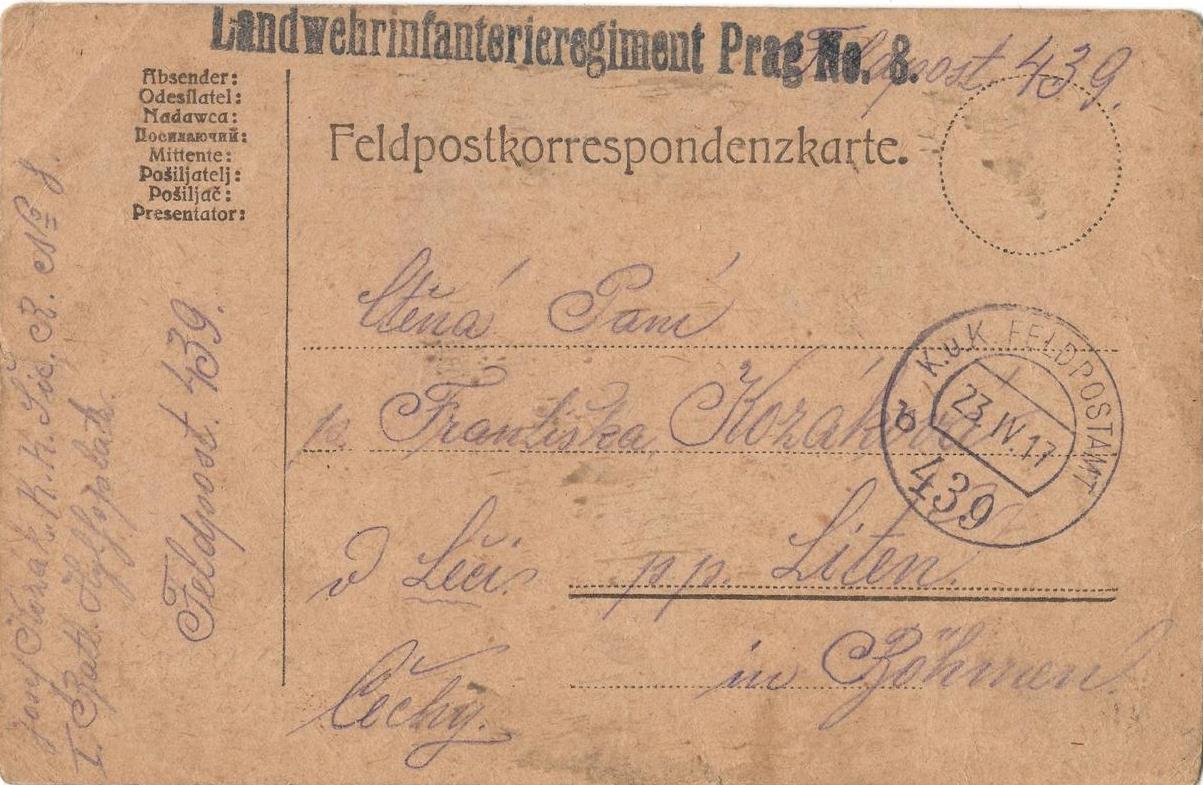 Landwehrinfanterieregiment Prag No. 8.
Feldpost 439.
Absender:
Odesílatel:
Nadawca:
Посилаючий:
Mittente:
Pošiljatelj:
Pošiljač:
Presentator:
Feldpostkorrespondenzkarte.
Ctěná Paní
p. Františka Kozáková
v Leči p. p. Liteň
Čechy. in Böhmen.
K.u.K. FELDPOSTAMT
23.IV.17
b
439
Feldpost 439.
Kozák K. K. R. No 8.